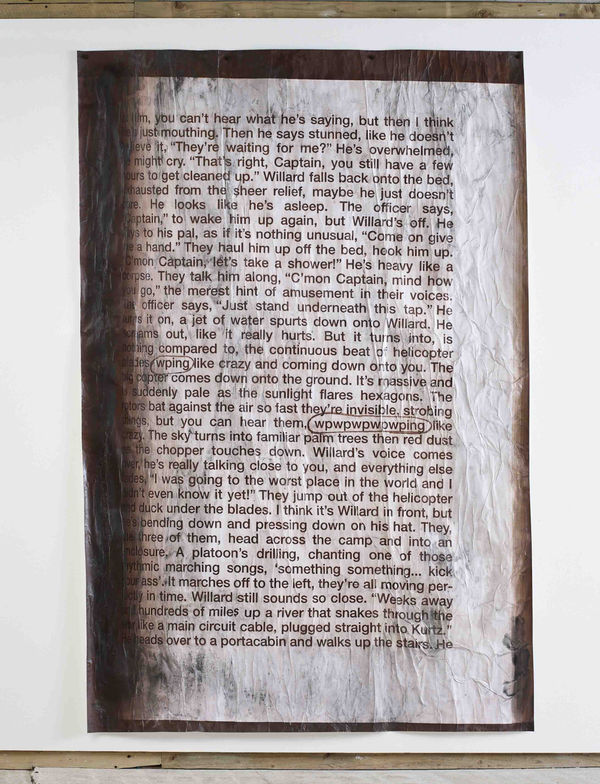 him, you can't hear what he's saying, but then I think
he's just mouthing. Then he says stunned, like he doesn't
believe it, "They're waiting for me?" He's overwhelmed,
he might cry. "That's right, Captain, you still have a few
hours to get cleaned up." Willard falls back onto the bed,
exhausted from the sheer relief, maybe he just doesn't
care. He looks like he's asleep. The officer says,
"Captain," to wake him up again, but Willard's off. He
says to his pal, as if it's nothing unusual, "Come on give
me a hand." They haul him up off the bed, hook him up.
"C'mon Captain, let's take a shower!" He's heavy like a
corpse. They talk him along, "C'mon Captain, mind how
you go," the merest hint of amusement in their voices.
officer says, "Just stand underneath this tap." He
turns it on, a jet of water spurts down onto Willard. He
screams out, like it really hurts. But it turns into, is
nothing compared to, the continuous beat of helicopter
blades wping like crazy and coming down onto you. The
big copter comes down onto the ground. It's massive and
suddenly pale as the sunlight flares hexagons. The
rotors bat against the air so fast they're invisible, strobing
things, but you can hear them, wpwpwpwpwping like
crazy. The sky turns into familiar palm trees then red dust
as the chopper touches down. Willard's voice comes
over, he's really talking close to you, and everything else
fades, "I was going to the worst place in the world and I
didn't even know it yet!" They jump out of the helicopter
and duck under the blades. I think it's Willard in front, but
he's bending down and pressing down on his hat. They,
the three of them, head across the camp and into an
enclosure. A platoon's drilling, chanting one of those
rythmic marching songs, 'something something... kick
your ass'. It marches off to the left, they're all moving per-
fectly in time. Willard still sounds so close. "Weeks away
and hundreds of miles up a river that snakes through the
war like a main circuit cable, plugged straight into Kurtz."
He heads over to a portacabin and walks up the stairs. He